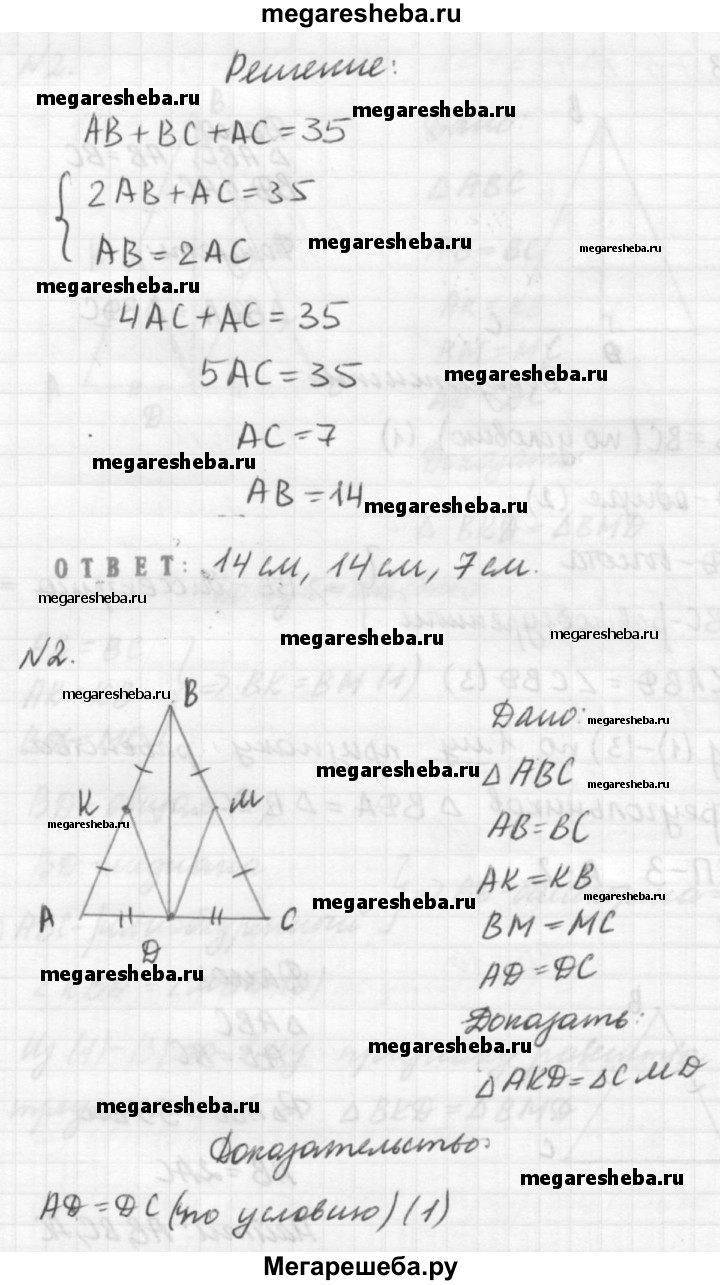 megaresheba.ru
Решение:
megaresheba.ru
megaresheba.ru
AB+BC+AC=35
2AB+AC=35
AB=2AC
megaresheba.ru
megaresheba.ru
megaresheba.ru
4AC+AC=35
5AC=35
megaresheba.ru
AC=7
megaresheba.ru
AB=14
megaresheba.ru
ОТВЕТ: 14 см, 14 см, 7 см.
megaresheba.ru
megaresheba.ru
megaresheba.ru
№2.
megaresheba.ru
B
Дано:
megaresheba.ru
megaresheba.ru
△ABC
megaresheba.ru
K
M
megaresheba.ru
AB=BC
AK=KB
megaresheba.ru
megaresheba.ru
A
C
BM=MC
D
megaresheba.ru
AD=DC
Доказать:
megaresheba.ru
△AKD=△CMD
megaresheba.ru
Доказательство:
megaresheba.ru
AD=DC (по условию) (1)
Мегарешеба.ру